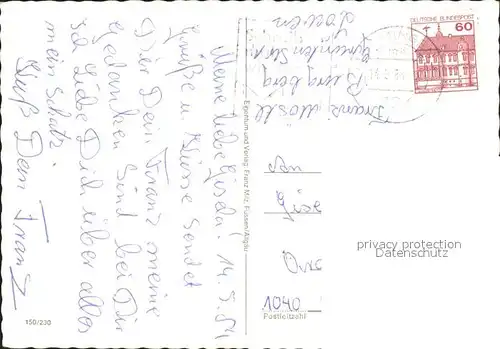 Meine liebe Gisela! 14.5.84
Grüße u Küsse sendet
Dir Dein Franz meine
Gedanken sind bei Dir
ich Liebe Dich über alles
mein Schatz.
Kuß Dein Franz
Franz
Burgberg
DEUTSCHE BUNDESPOST
60
Eigentum und Verlag: Franz Milz, Füssen/Allgäu
An
Gise
privacy protection
Datenschutz
1040
Postleitzahl
150/230